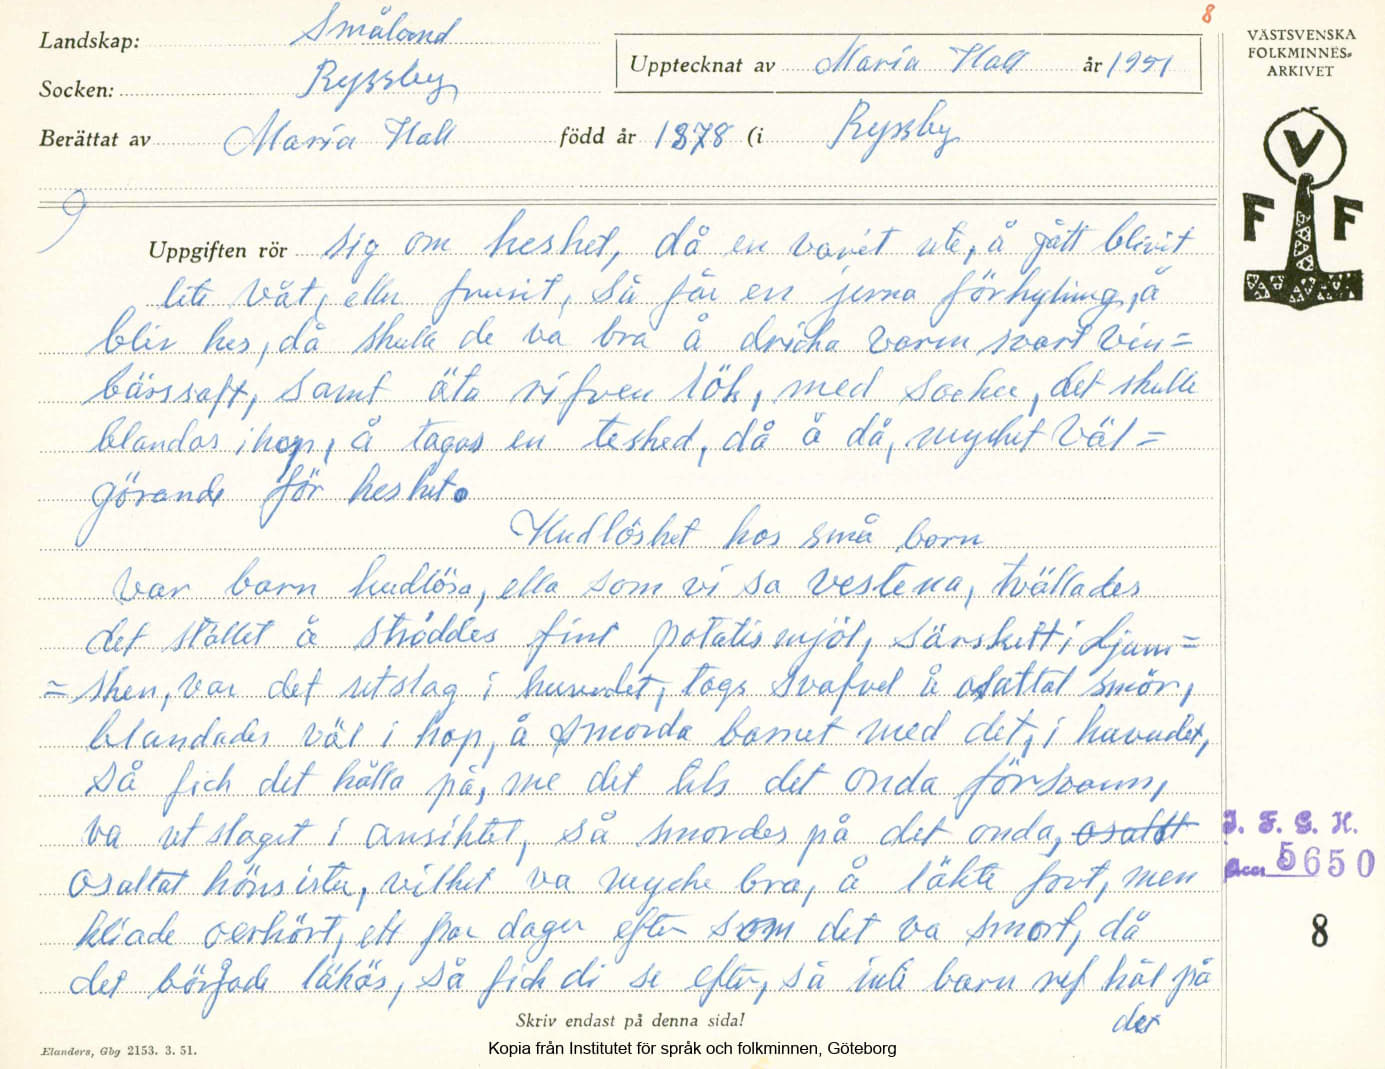 8
Landskap: Småland
Socken: Ryssby
Upptecknat av Maria Hall år 1951
Berättat av Maria Hall född år 1878 (i Ryssby
VÄSTSVENSKA
FOLKMINNES-
ARKIVET
V
F F
9
Uppgiften rör sig om heshet, då en varit ute, å gått blivit
lite våt, eller frusit, så får en jerna förkyling, å
bliv hes, då skulle de va bra å dricka varm svart vin=
bärssaft, samt äta rifven lök, med socker, det skulle
blandas ihop, å tagas en teshed, då å då, mycket väl=
görande för heshet.
Hudlöshet hos små barn
Var barn hudlösa, ella som vi sa vestena, tvällades
det stället å ströddes fint potatismjöl, särskett i Ljum=
=sken, var det utslag i huvudet, togs Svafvel å osaltat smör,
blandades väl i hop, å smorda barnet med det, i huvudet,
så fick det hålla på, me det tils det onda försvann,
va utslaget i ansiktet, så smordes på det onda, osaltt
osaltat hönsister, vilket va mycke bra, å läkte fort, men
kliade oerhört, ett par dager efter som det va smort, då
det började läkas, så fick di se efter, så inte barn ref hål på
det
J. F. G. H.
Acc 5650
8
Skriv endast på denna sida!
Elanders, Gbg 2153. 3. 51.
Kopia från Institutet för språk och folkminnen, Göteborg